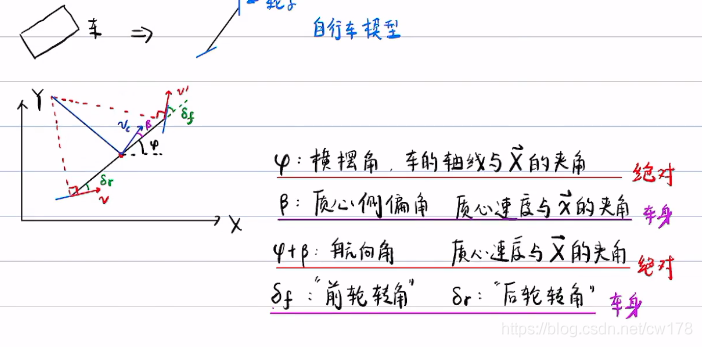 轮子
车 ⇒ 自行车模型
Y
v'
δf
vc
β
φ
δr
v
X
φ: 横摆角. 车的轴线与X⃗的夹角 绝对
β: 质心侧偏角 质心速度与x⃗的夹角 车身
φ+β: 航向角 质心速度与X⃗的夹角 绝对
δf: "前轮转角" δr: "后轮转角" 车身
https://blog.csdn.net/cw178